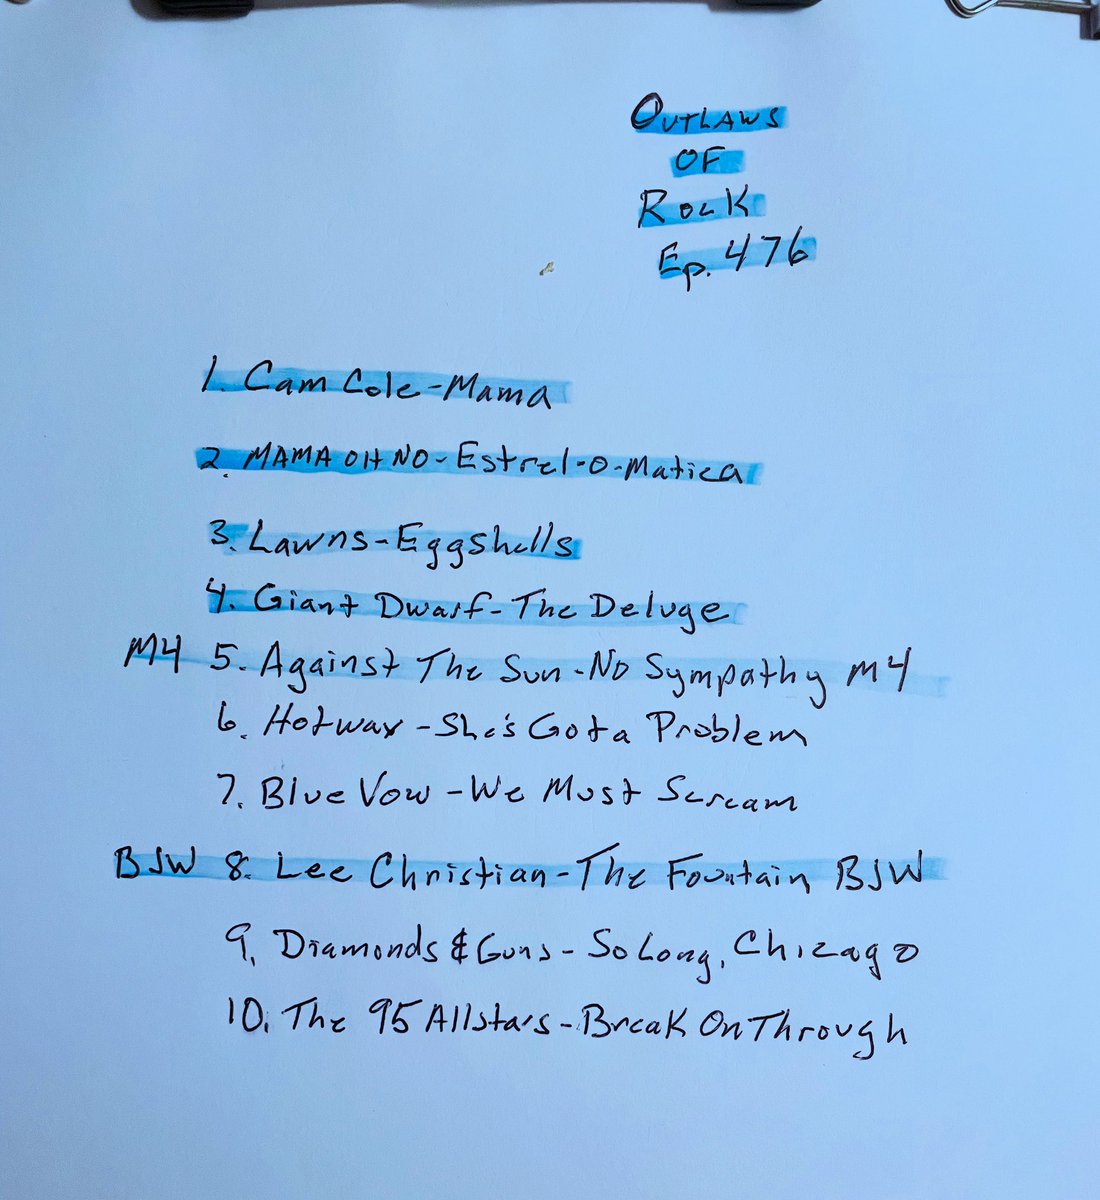 OUTLAWS
OF
ROCK
Ep. 476
1. Cam Cole - Mama
2. MAMA OH NO - Estrel-o-Matica
3. Lawns - Eggshells
4. Giant Dwarf - The Deluge
M4 5. Against The Sun - No Sympathy M4
6. Hotwax - She's Got a Problem
7. Blue Vow - We Must Scream
BJW 8. Lee Christian - The Fountain BJW
9. Diamonds & Guns - So Long, Chicago
10. The 95 Allstars - Break On Through